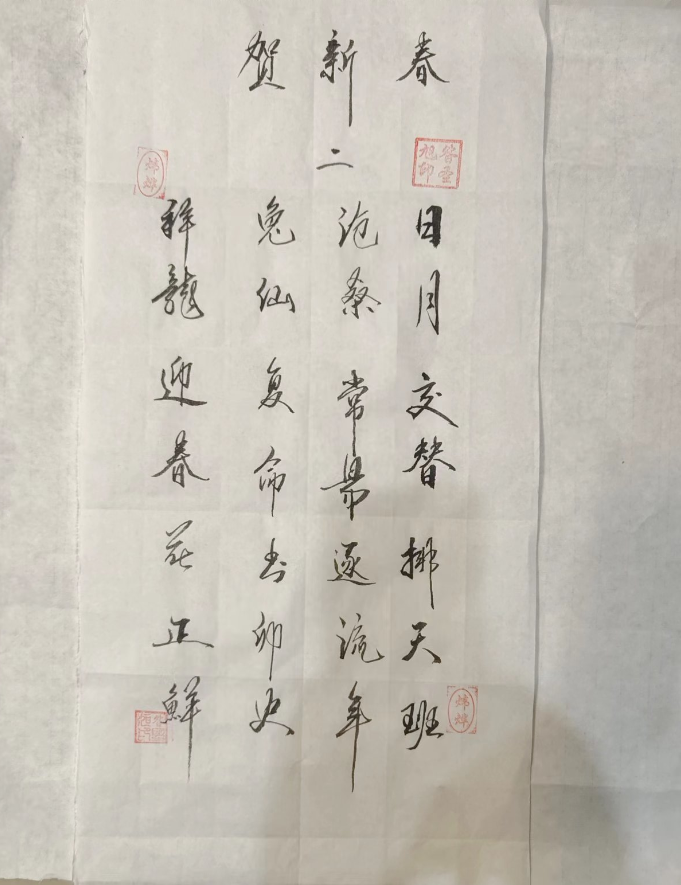 贺新春
二
日月交替排天班
沧桑常易逐流年
兔仙复命书卯史
祥龍迎春花正鮮